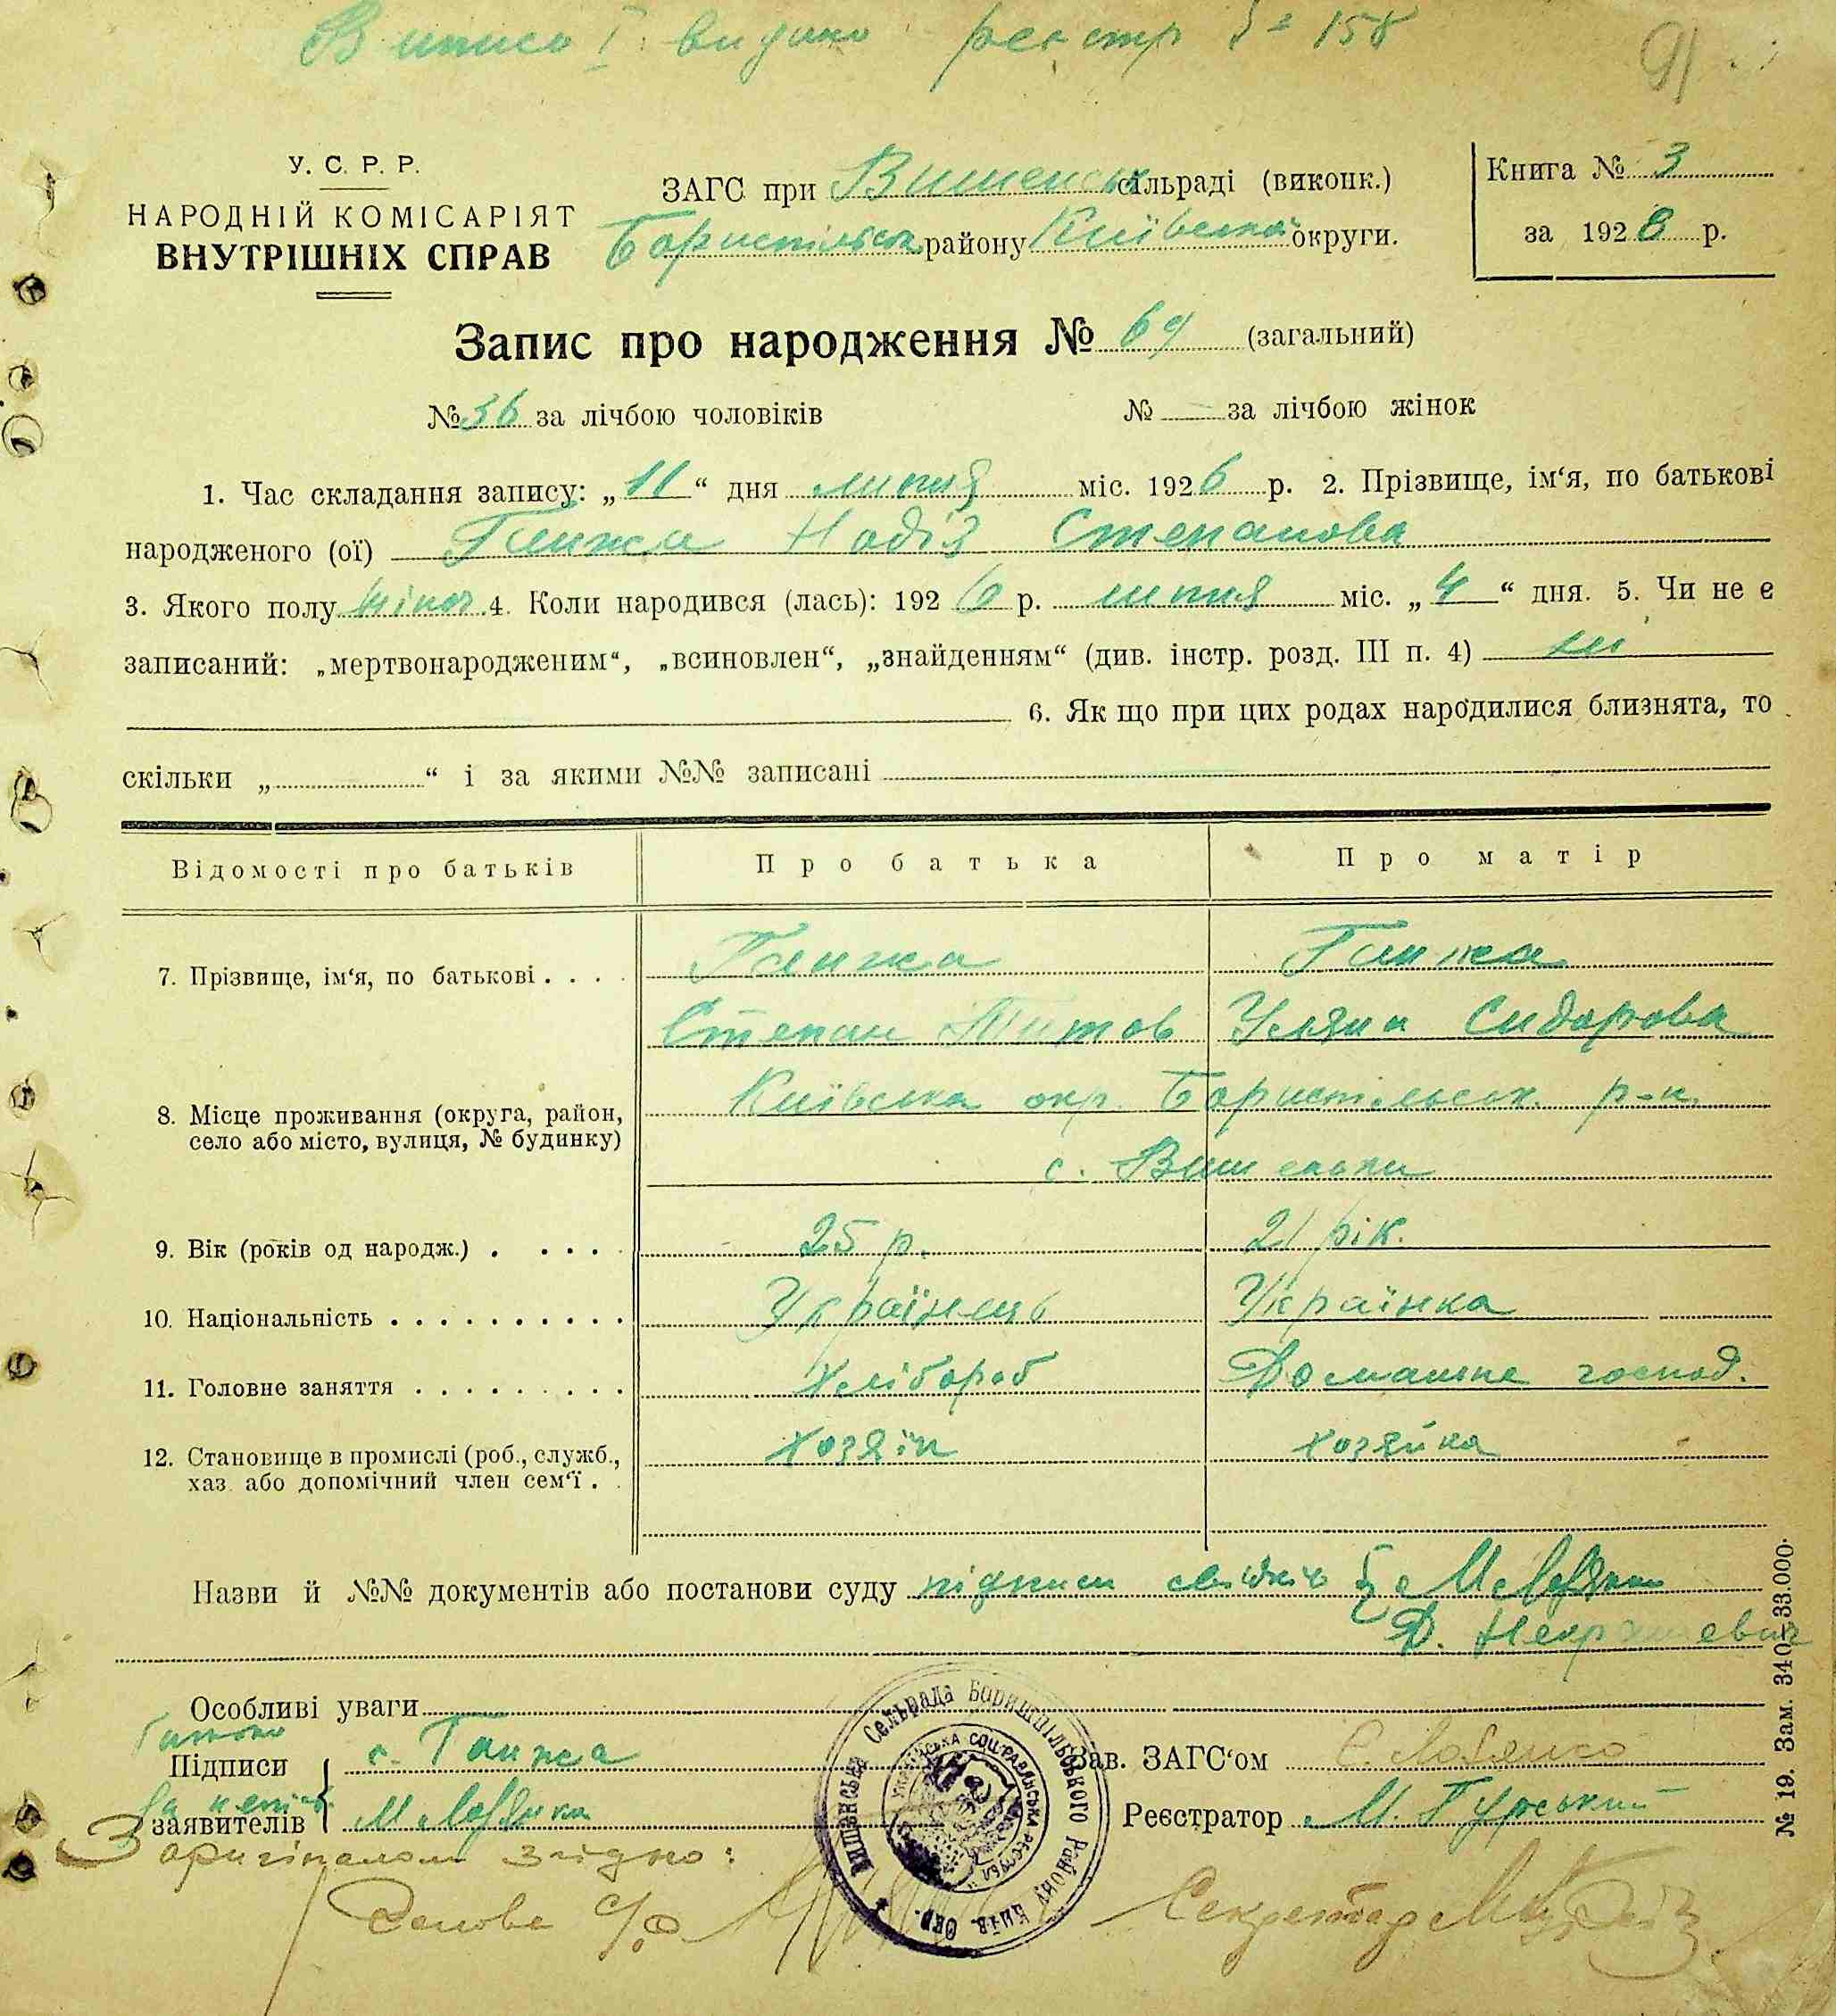 Випись I видано реєстр № 158
91
У. С. Р. Р.
НАРОДНІЙ КОМІСАРІЯТ
ВНУТРІШНІХ СПРАВ
ЗАГС при Вишенськ сільраді (виконк.)
Бориспільськ району Київської округи.
Книга № 3
за 1926 р.
Запис про народження № 69 (загальний)
№ 36 за лічбою чоловіків № — за лічбою жінок
1. Час складання запису: „11“ дня липня міс. 1926 р. 2. Прізвище, ім‘я, по батькові
народженого (ої) Ганжа Надія Степанова
3. Якого полу жіноч 4. Коли народився (лась): 1926 р. липня міс. „4“ дня. 5. Чи не є
записаний: „мертвонародженим“, „всиновлен“, „знайденням“ (див. інстр. розд. III п. 4) ні
6. Як що при цих родах народилися близнята, то
скільки „ “ і за якими №№ записані
Відомості про батьків Про батька Про матір
7. Прізвище, ім‘я, по батькові . . . . Ганжа Ганжа
Степан Титов Уляна Сидорова
8. Місце проживання (округа, район, село або місто, вулиця, № будинку) Київська окр. Бориспільськ. р-н.
с. Вишеньки
9. Вік (років од народж.) . . . . . 25 р. 21 рік.
10. Національність . . . . . . . . . . Українець Українка
11. Головне заняття . . . . . . . . . Хлібороб Домашнє господ.
12. Становище в промислі (роб., служб., хаз. або допомічний член сем‘ї . . хозяїн хозяйка
Назви й №№ документів або постанови суду підписи свідків
Д. Некрашевич
Особливі уваги
Підписи заявителів
с. Ганжа
Зав. ЗАГС‘ом
Реєстратор М. Гурський
З оригіналом згідно:
Голова С/Р
Секретар
Вишенська Сельрада Бориспільського Району Київ. Окр.
Українська Соц. Радянська Республ.
№ 19. Зам. 340—33.000.